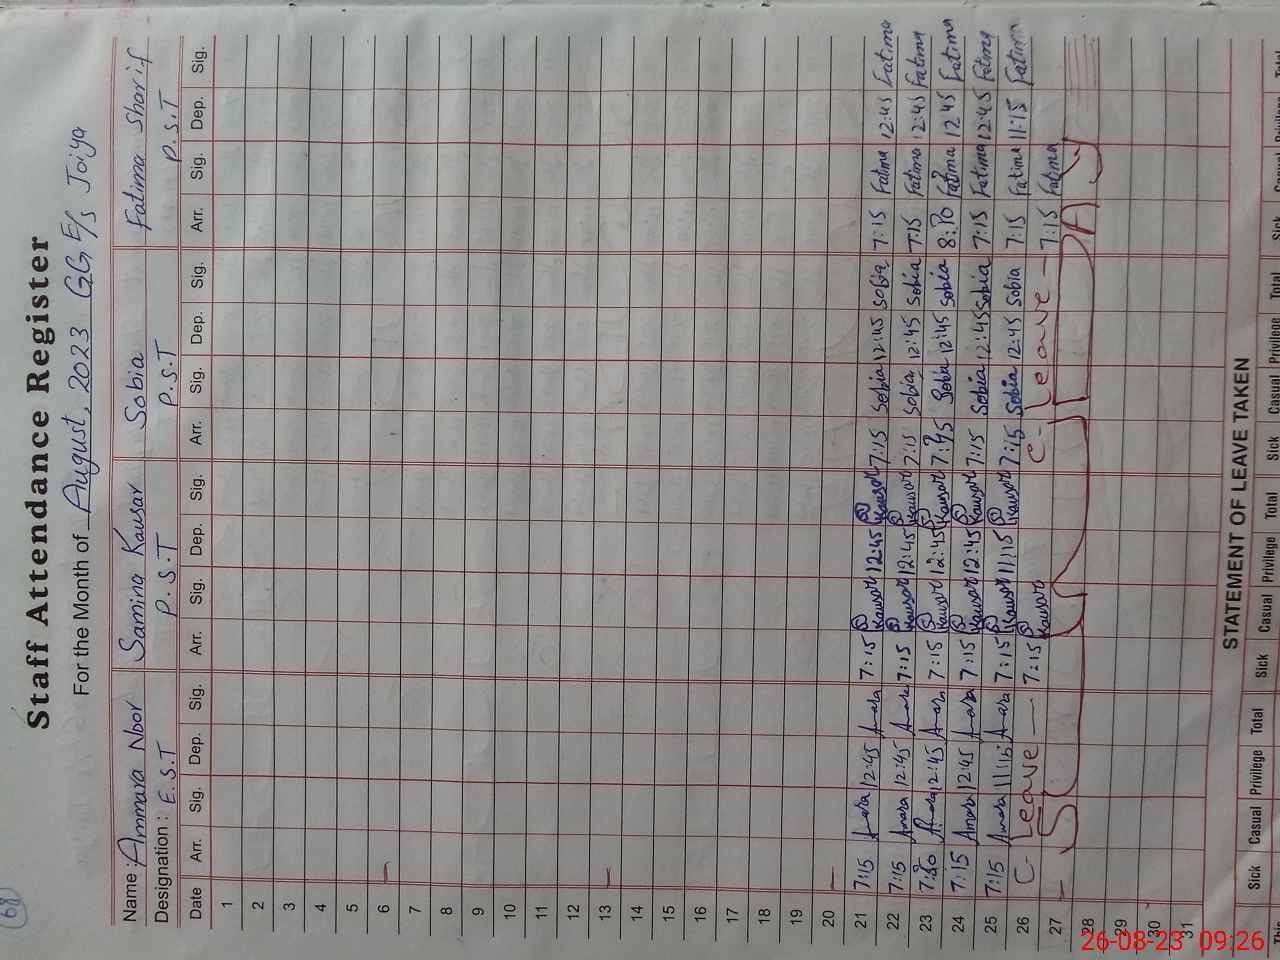 68
Staff Attendance Register
For the Month of August, 2023 GG E/s Joiya
Name : Ammara Noor Samina Kausar Sobia Fatima Sharif
Designation : E.S.T P.S.T P.S.T P.S.T
Date Arr. Sig. Dep. Sig. Arr. Sig. Dep. Sig. Arr. Sig. Dep. Sig. Arr. Sig. Dep. Sig.
1
2
3
4
5
6
7
8
9
10
11
12
13
14
15
16
17
18
19
20
21 7:15 Amara 12:45 Amara 7:15 S Kausar 12:45 S Kausar 7:15 Sobia 12:45 Sobia 7:15 Fatima 12:45 Fatima
22 7:15 Amara 12:45 Amara 7:15 S Kausar 12:45 S Kausar 7:15 Sobia 12:45 Sobia 7:15 Fatima 12:45 Fatima
23 Amara 12:45 Amara 7:15 S Kausar 12:45 S Kausar Sobia 12:45 Sobia Fatima 12:45 Fatima
24 7:15 Amara 12:45 Amara 7:15 S Kausar 12:45 S Kausar 7:15 Sobia 12:45 Sobia 7:15 Fatima 12:45 Fatima
25 7:15 Amara 11:15 Amara 7:15 S Kausar 11:15 S Kausar 7:15 Sobia 12:45 Sobia 7:15 Fatima 11:15 Fatima
26 C- Leave — 7:15 S Kausar C- Leave - 7:15 Fatima
27 - S U N D A Y
28
29
30
31
STATEMENT OF LEAVE TAKEN
Sick Casual Privilege Total Sick Casual Privilege Total Sick Casual Privilege Total Sick Casual Privilege Total
26-08-23 09:26